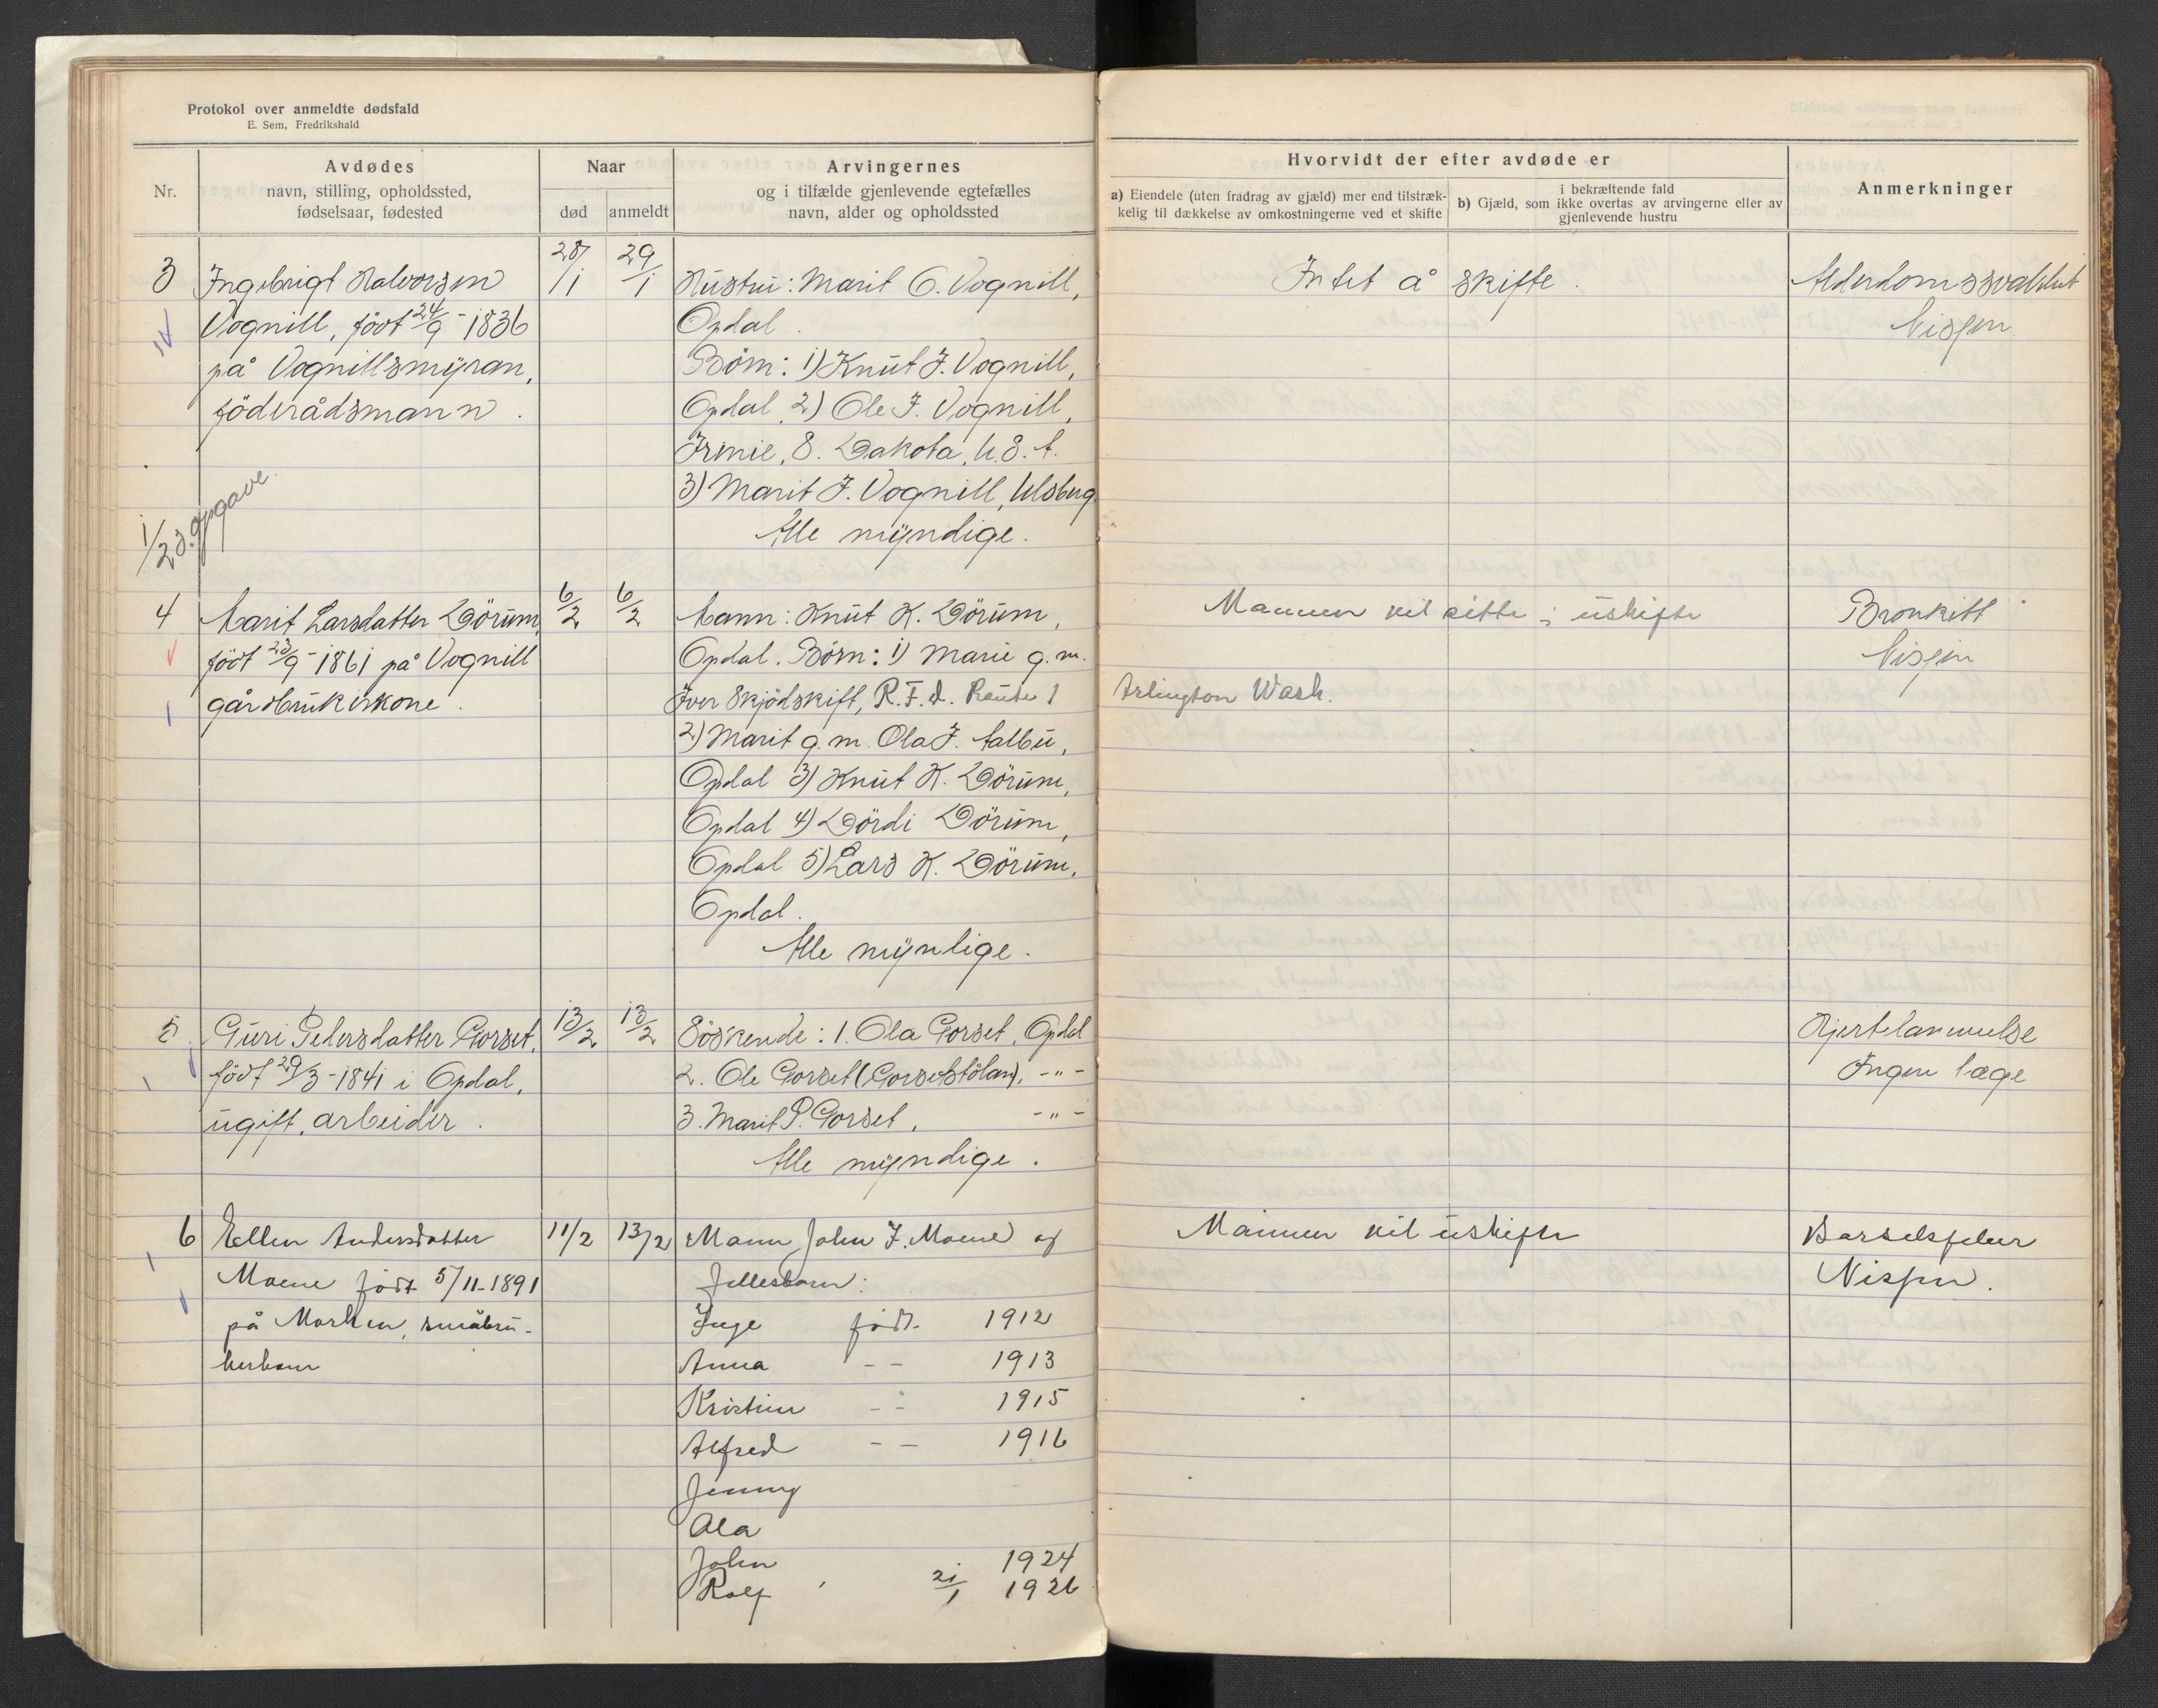 Protokol over anmeldte dødsfald
E. Sem, Fredrikshald
Nr.
Avdødes
navn, stilling, opholdssted,
fødselsaar, fødested
Naar
død
anmeldt
Arvingernes
og i tilfælde gjenlevende egtefælles
navn, alder og opholdssted
Hvorvidt der efter avdøde er
a) Eiendele (uten fradrag av gjæld) mer end tilstræk-
kelig til dækkelse av omkostningerne ved et skifte
i bekræftende fald
b) Gjæld, som ikke overtas av arvingerne eller av
gjenlevende hustru
Anmerkninger
3
Ingebrigt Halvorsen
Vognill, født 24/9-1836
på Vognillsmyran,
föderådsmann.
28/1
29/1
Hustru: Marit O. Vognill,
Opdal.
Børn: 1) Knut I. Vognill,
Opdal, 2) Ole I. Vognill,
Irmie, S. Dakota, U.S.A.
3) Marit I. Vognill, Ulsberg.
Alle myndige.
Intet å skifte.
Alderdomssvakhet
Nissen
1/23. opgave.
4
Marit Larsdatter Dörum,
født 23/9-1861 på Vognill
gårdbrukerkone.
6/2
6/2
Mann: Knut K. Dörum,
Opdal. Børn: 1) Marie g.m.
Iver Skjödskift, R.F.d. Raute 1
Arlington Wash.
2) Marit g.m. Ola J. Aalbu,
Opdal 3) Knut K. Dörum,
Opdal 4) Dördi Dörum,
Opdal 5) Lars K. Dörum,
Opdal.
Alle mynlige.
Mannen vil sitte i uskifte
Bronkitt
Nissen
5
Guri Pedersdatter Gorset,
født 29/3-1841 i Opdal,
ugift, arbeider.
13/2
13/2
Söskende: 1. Ola Gorset, Opdal
2. Ole Gorset (Gorsetstölan), -"-
3. Marit P. Gorset, -"-
Alle myndige.
Hjertelammelse
Ingen læge
6
Ellen Andersdatter
Moene født 5/11-1891
på Morken, småbru-
kerkone
11/2
13/2
Mann John J. Moene og
fellesbarn:
Inge født 1912
Anna - - 1913
Kristine - - 1915
Alfred - - 1916
Jenny
Ola
John 1924
Rolf 21/1 1926
Mannen vil uskifte
Barselsfeber
Nissen.